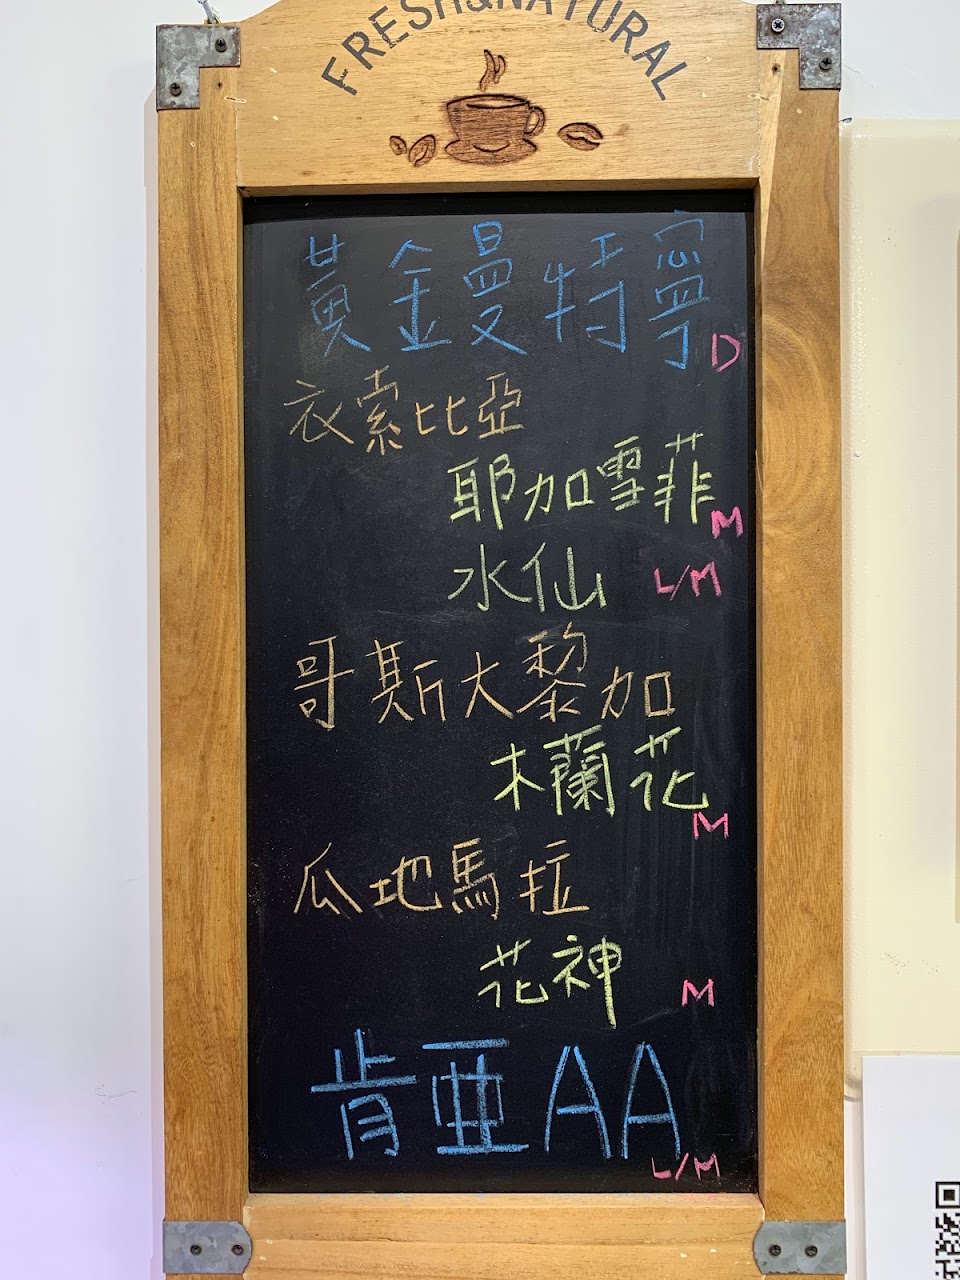 FRESH&NATURAL
黃金曼特寧 D
衣索比亞
耶加雪菲 M
水仙 L/M
哥斯大黎加
木蘭花 M
瓜地馬拉
花神 M
肯亞AA L/M